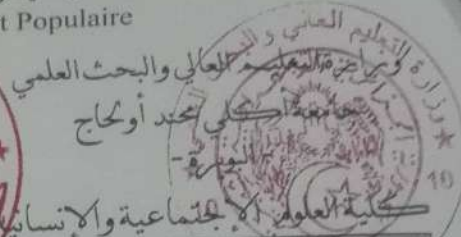 t Populaire
وزارة التعليم العالي والبحث العلمي
جامعة أكلي محند أولحاج
- البويرة -
كلية العلوم الإجتماعية والإنسانية
وزارة التعليم العالي و